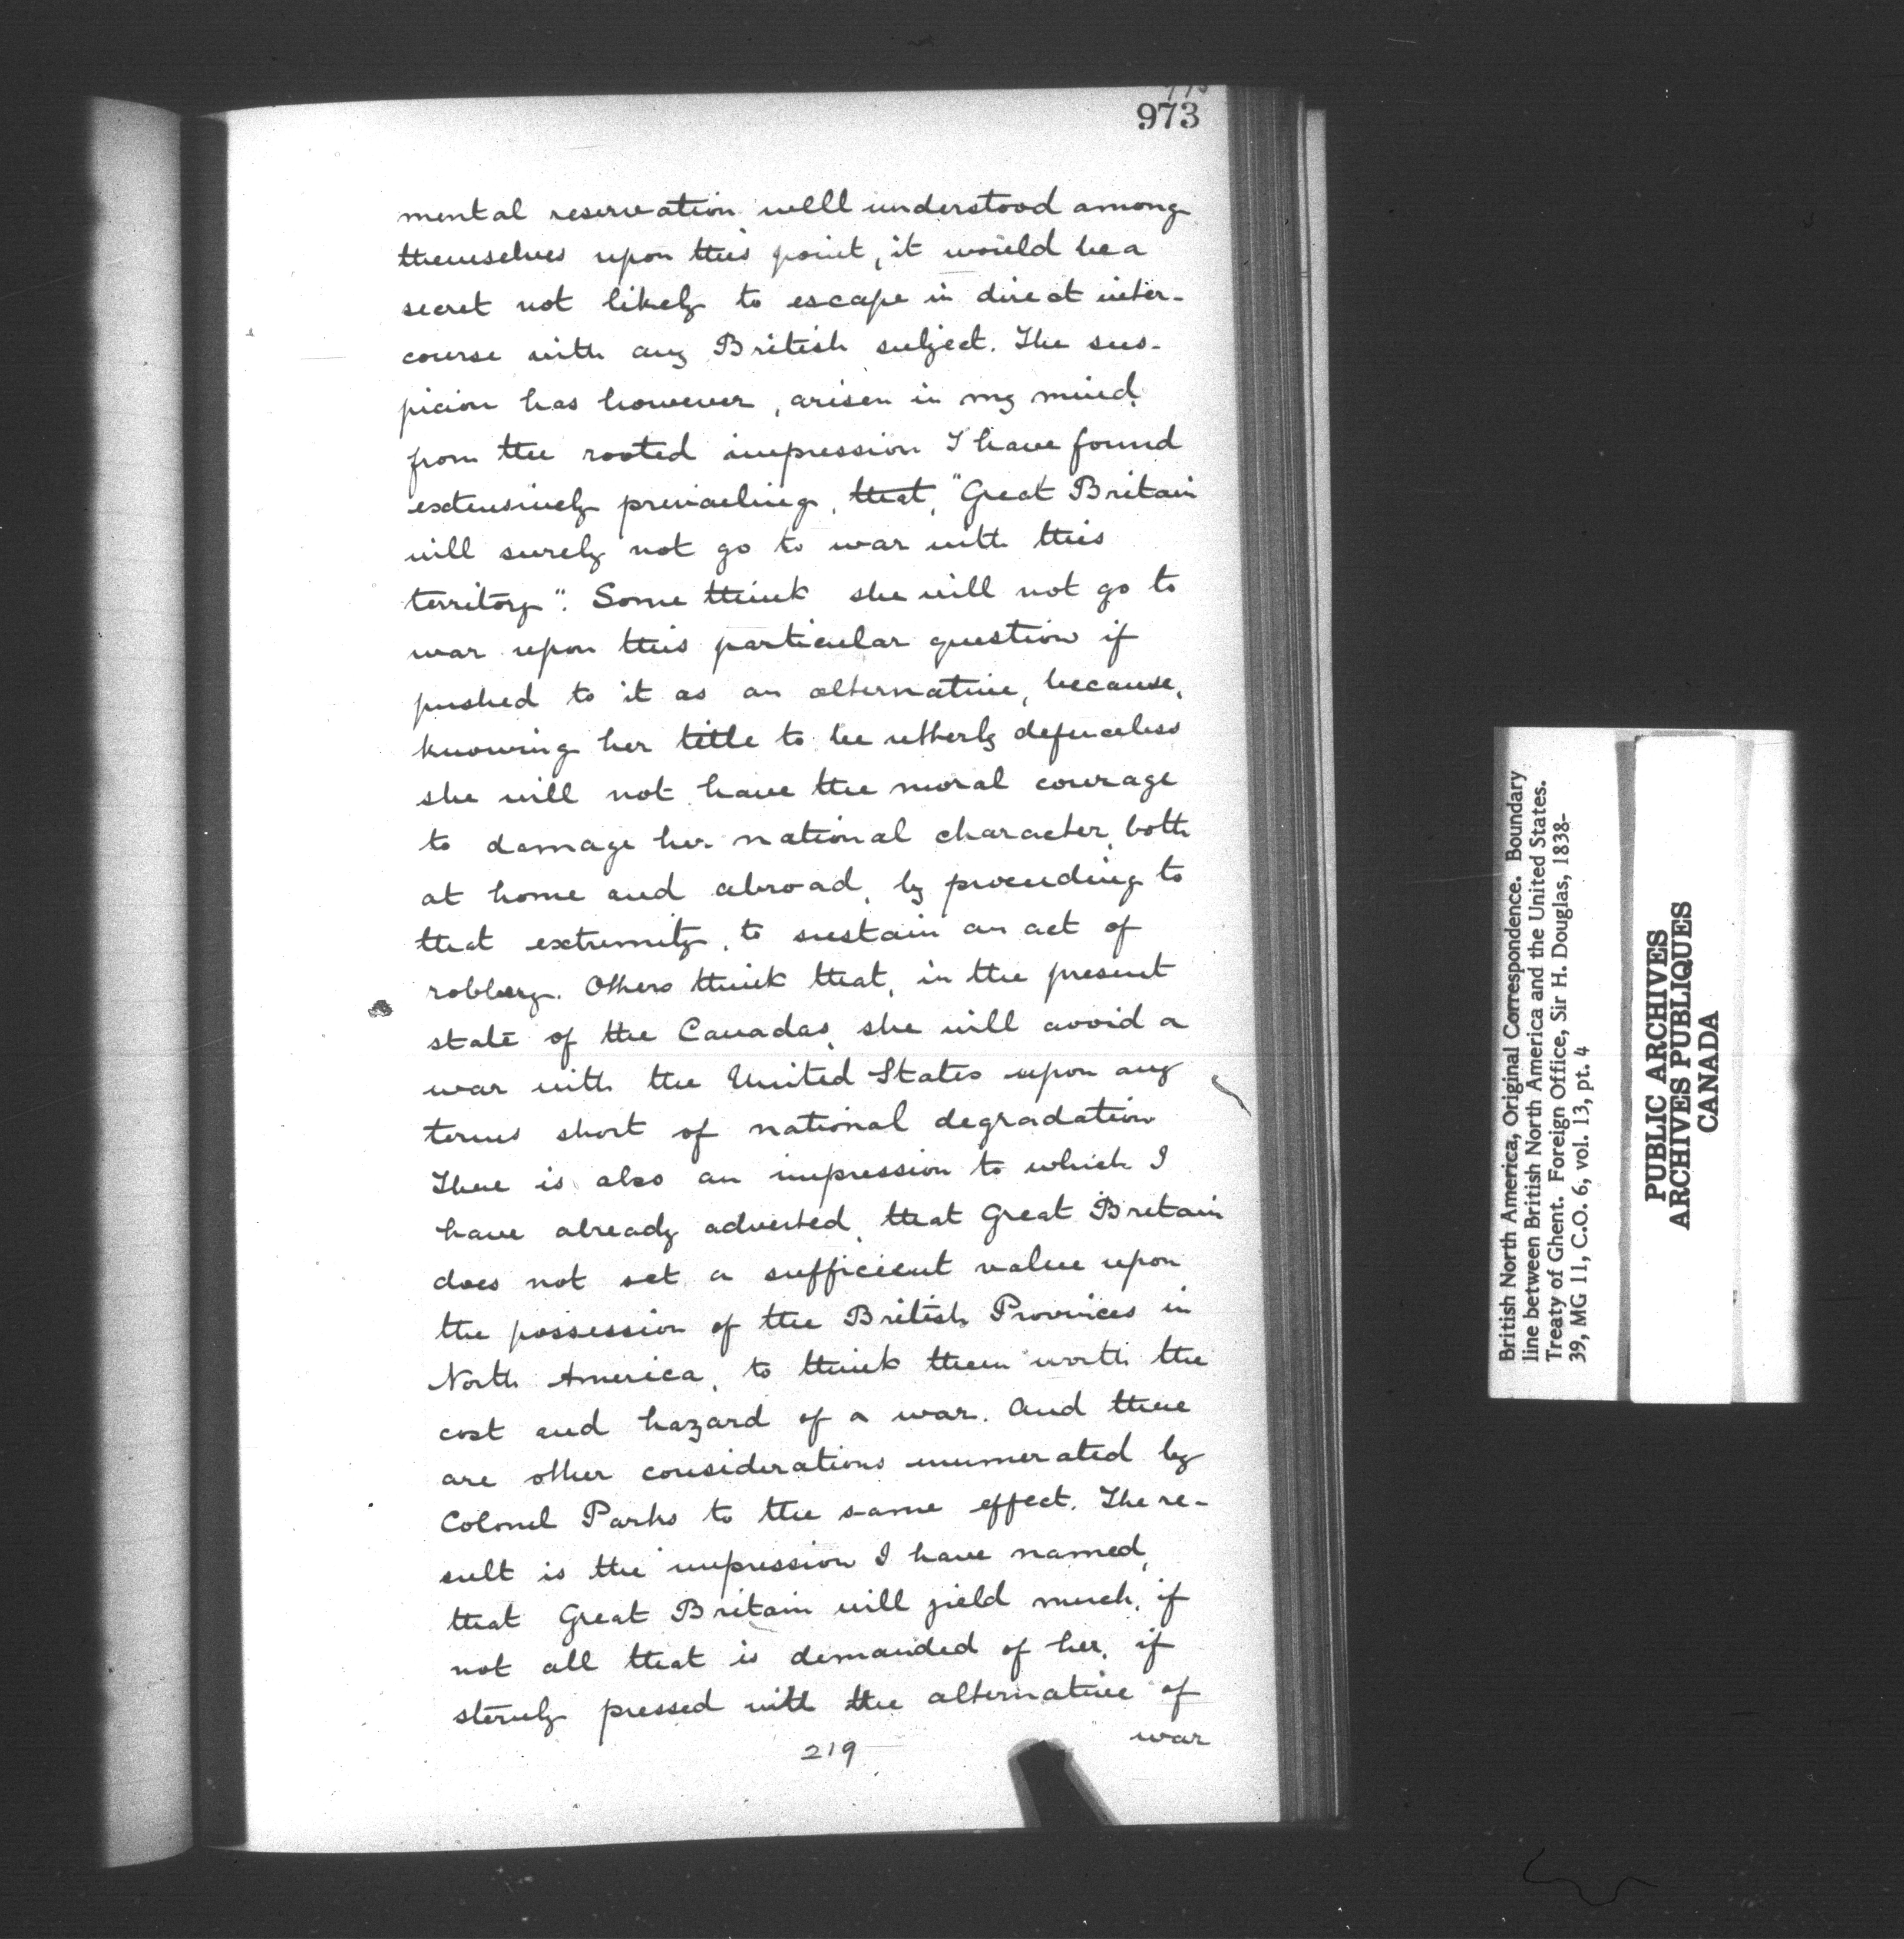 973
mental reservation well understood among
themselves upon this point, it would be a
secret not likely to escape in direct inter-
course with any British subject. The sus-
picion has however, arisen in my mind,
from the rooted impression I have found
extensively prevailing, that, "Great Britain
will surely not go to war with this
territory". Some think she will not go to
war upon this particular question if
pushed to it as an alternative, because,
knowing her title to be utterly defenceless
she will not have the moral courage
to damage her national character, both
at home and abroad, by proceeding to
that extremity, to sustain an act of
robbery. Others think that, in the present
state of the Canadas, she will avoid a
war with the United States upon any
terms short of national degradation
There is also an impression to which I
have already adverted, that Great Britain
does not set a sufficient value upon
the possession of the British Provinces in
North America, to think them worth the
cost and hazard of a war. And there
are other considerations enumerated by
Colonel Parks to the same effect. The re-
sult is the impression I have named,
that Great Britain will yield much, if
not all that is demanded of her, if
sternly pressed with the alternative of
war
219
British North America, Original Correspondence. Boundary
line between British North America and the United States.
Treaty of Ghent. Foreign Office, Sir H. Douglas, 1838-
39, MG 11, C.O. 6, vol. 13, pt. 4
PUBLIC ARCHIVES
ARCHIVES PUBLIQUES
CANADA